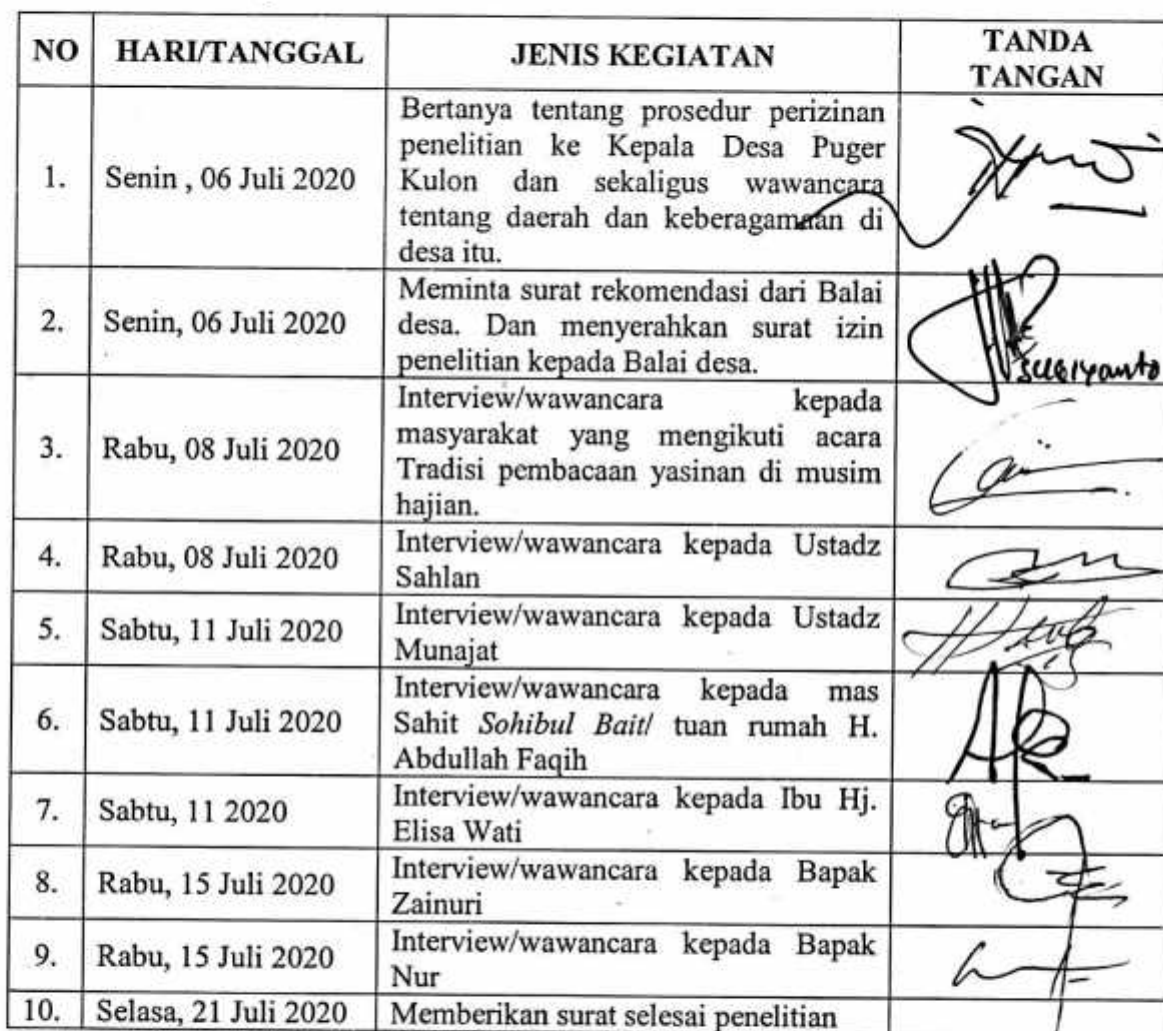 NO HARI/TANGGAL JENIS KEGIATAN TANDA
TANGAN
1. Senin , 06 Juli 2020 Bertanya tentang prosedur perizinan
penelitian ke Kepala Desa Puger
Kulon dan sekaligus wawancara
tentang daerah dan keberagamaan di
desa itu.
2. Senin, 06 Juli 2020 Meminta surat rekomendasi dari Balai
desa. Dan menyerahkan surat izin
penelitian kepada Balai desa.
Sugiyanto
3. Rabu, 08 Juli 2020 Interview/wawancara kepada
masyarakat yang mengikuti acara
Tradisi pembacaan yasinan di musim
hajian.
4. Rabu, 08 Juli 2020 Interview/wawancara kepada Ustadz
Sahlan
5. Sabtu, 11 Juli 2020 Interview/wawancara kepada Ustadz
Munajat
6. Sabtu, 11 Juli 2020 Interview/wawancara kepada mas
Sahit Sohibul Bait/ tuan rumah H.
Abdullah Faqih
7. Sabtu, 11 2020 Interview/wawancara kepada Ibu Hj.
Elisa Wati
8. Rabu, 15 Juli 2020 Interview/wawancara kepada Bapak
Zainuri
9. Rabu, 15 Juli 2020 Interview/wawancara kepada Bapak
Nur
10. Selasa, 21 Juli 2020 Memberikan surat selesai penelitian